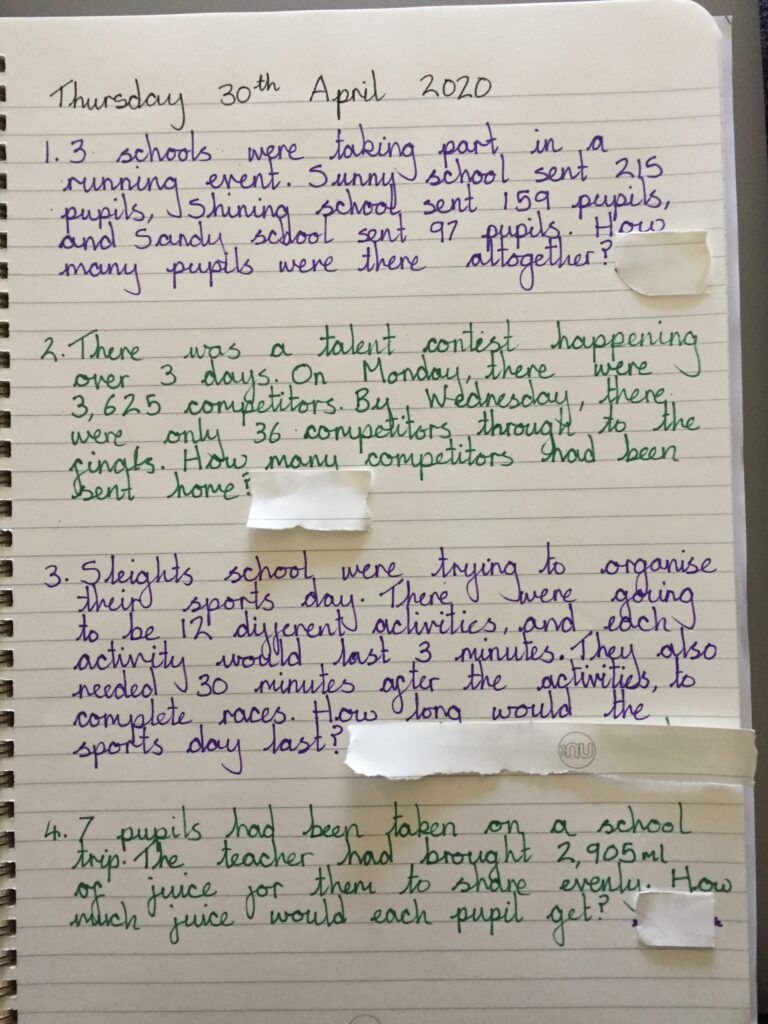 Thursday 30th April 2020
1. 3 schools were taking part in a
running event. Sunny school sent 215
pupils, Shining school sent 159 pupils,
and Sandy school sent 97 pupils. How
many pupils were there altogether?
2. There was a talent contest happening
over 3 days. On Monday, there were
3,625 competitors. By Wednesday, there
were only 36 competitors through to the
finals. How many competitors had been
sent home?
3. Sleights school were trying to organise
their sports day. There were going
to be 12 different activities, and each
activity would last 3 minutes. They also
needed 30 minutes after the activities, to
complete races. How long would the
sports day last?
nu:
4. 7 pupils had been taken on a school
trip. The teacher had brought 2,905ml
of juice for them to share evenly. How
much juice would each pupil get?